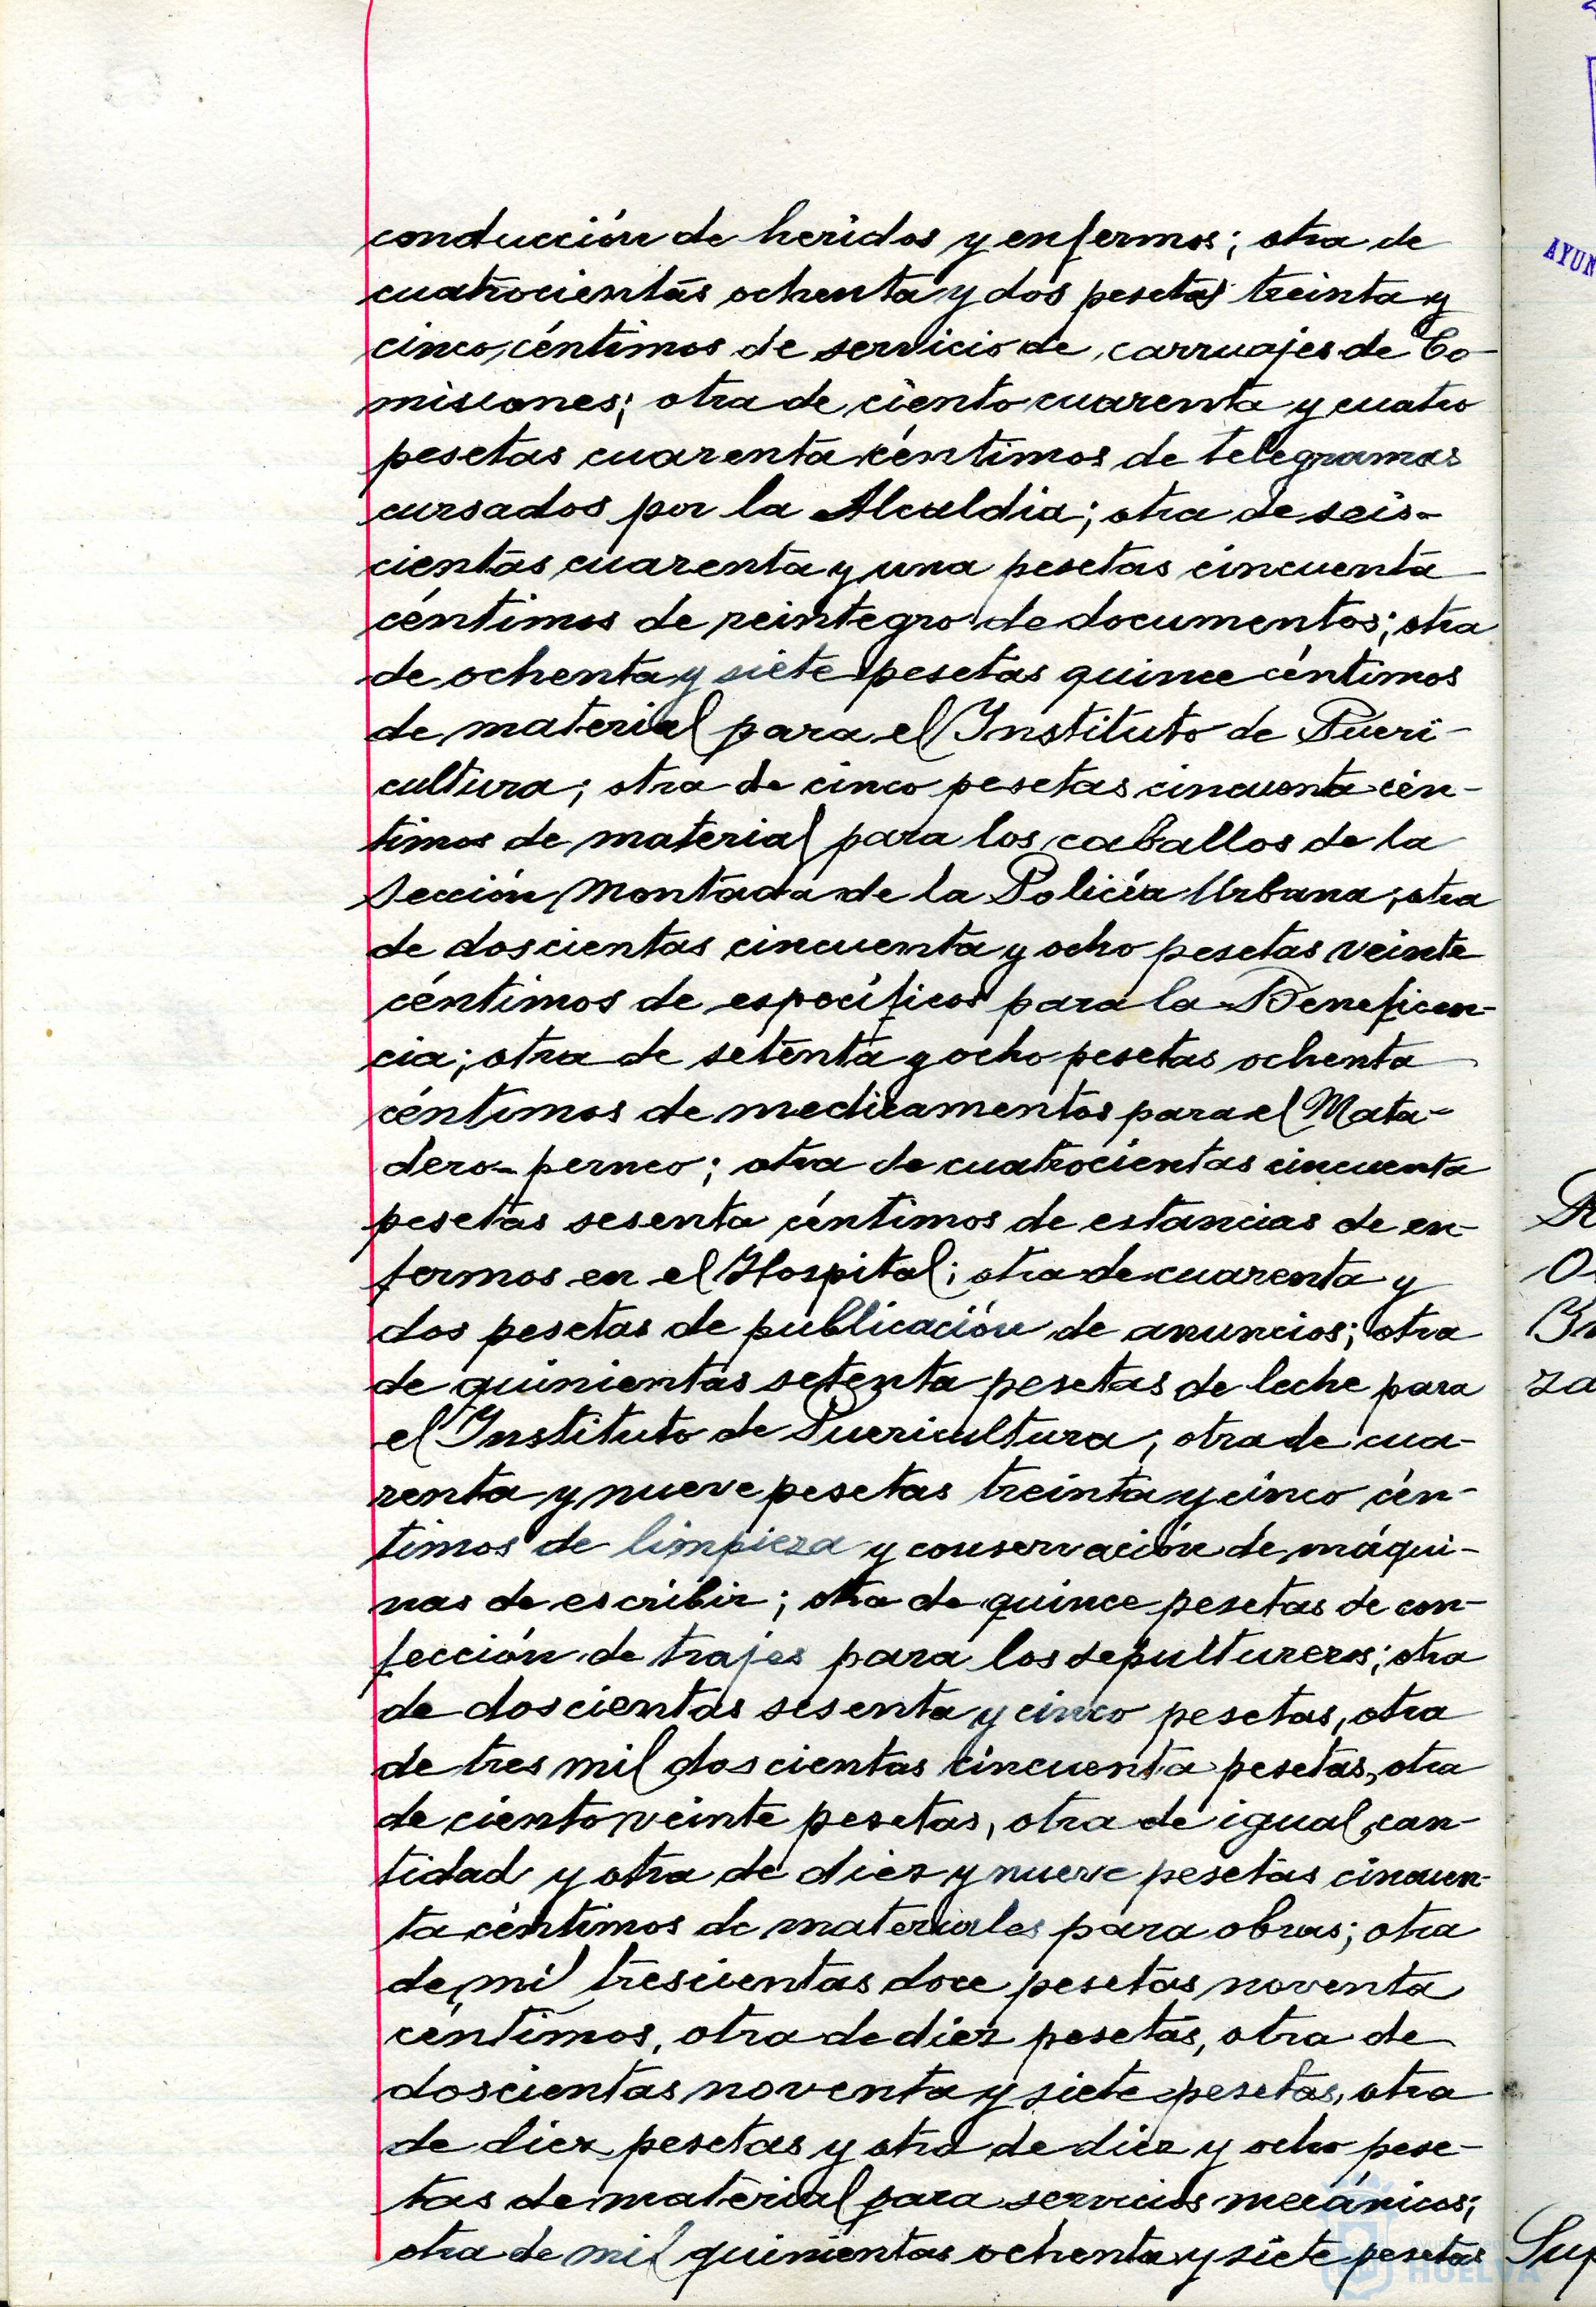 conducción de heridos y enfermos; otra de
cuatrocientas ochenta y dos pesetas treinta y
cinco céntimos de servicio de carruajes de Co-
misiones; otra de ciento cuarenta y cuatro
pesetas cuarenta céntimos de telegramas
cursados por la Alcaldia; otra de seis-
cientas cuarenta y una pesetas cincuenta
céntimos de reintegro de documentos; otra
de ochenta y siete pesetas quince céntimos
de material para el Instituto de Pueri-
cultura; otra de cinco pesetas cincuenta cén-
timos de material para los caballos de la
Sección Montada de la Policía Urbana; otra
de doscientas cincuenta y ocho pesetas veinte
céntimos de específicos para la Beneficen-
cia; otra de setenta y ocho pesetas ochenta
céntimos de medicamentos para el Mata-
dero-perneo; otra de cuatrocientas cincuenta
pesetas sesenta céntimos de estancias de en-
fermos en el Hospital; otra de cuarenta y
dos pesetas de publicación de anuncios; otra
de quinientas setenta pesetas de leche para
el Instituto de Puericultura; otra de cua-
renta y nueve pesetas treinta y cinco cén-
timos de limpieza y conservación de máqui-
nas de escribir; otra de quince pesetas de con-
fección de trajes para los sepultureros; otra
de doscientas sesenta y cinco pesetas, otra
de tres mil doscientas cincuenta pesetas, otra
de ciento veinte pesetas, otra de igual can-
tidad y otra de diez y nueve pesetas cincuen-
ta céntimos de materiales para obras; otra
de mil trescientas doce pesetas noventa
céntimos, otra de diez pesetas, otra de
doscientas noventa y siete pesetas, otra
de diez pesetas y otra de diez y ocho pese-
tas de material para servicios mecánicos;
otra de mil quinientas ochenta y siete pesetas
AYUN
HUELVA